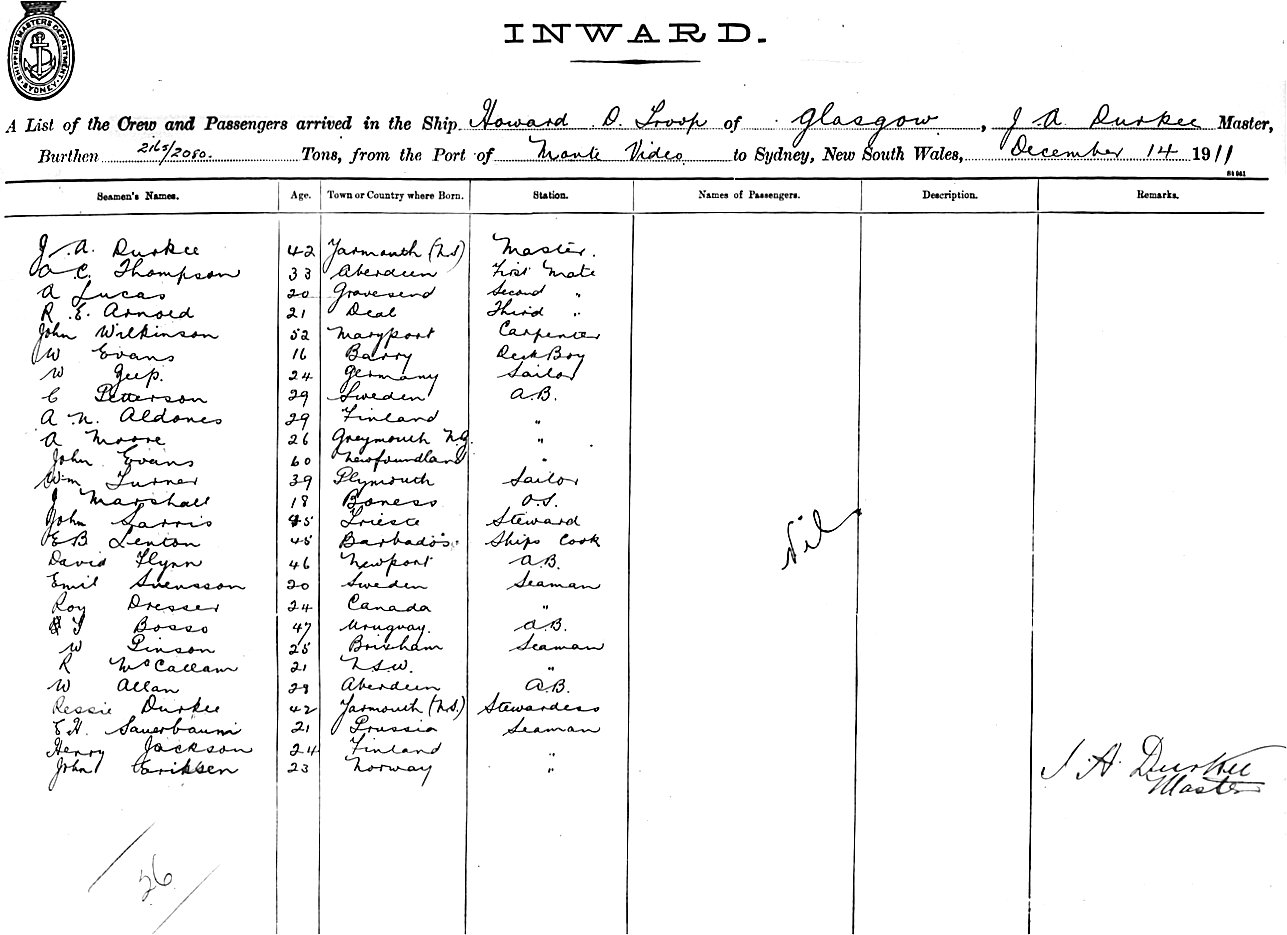 SHIPPING MASTERS DEPARTMENT SYDNEY
INWARD.
A List of the Crew and Passengers arrived in the Ship Howard D. Troop of Glasgow, J. A. Durkee Master,
Burthen 2165/2080 Tons, from the Port of Monte Video to Sydney, New South Wales, December 14 1911
Seamen's Names. Age. Town or Country where Born. Station. Names of Passengers. Description. Remarks.
J. A. Durkee 42 Yarmouth (NS) Master.
A C. Thompson 33 Aberdeen First Mate
A Lucas 20 Gravesend Second "
R. E. Arnold 21 Deal Third "
John Wilkinson 52 Maryport Carpenter
W Evans 16 Barry Deck Boy
W 24 Germany Sailor
C Petterson 29 Sweden A.B.
A. N. Aldones 29 Finland "
A Moore 26 Greymouth N.Z. "
John Evans 60 Newfoundland "
Wm Turner 39 Plymouth Sailor
J Marshall 18 Boness O.S.
John Sarris 45 Trieste Steward
E B Lenton 45 Barbados. Ships Cook
David Flynn 46 Newport A.B.
Emil Svensson 20 Sweden Seaman
Roy Dresser 24 Canada "
Bosso 47 Uruguay. A.B.
W Pinson 25 Brixham Seaman
R McCallam 21 N.S.W. "
W Allan 28 Aberdeen A.B.
Ressie Durkee 42 Yarmouth (N.S.) Stewardess
E H. Sauerbaum 21 Prussia Seaman
Henry Jackson 24 Finland "
John Eriksen 23 Norway "
Nil
J. A. Durkee
Master
26